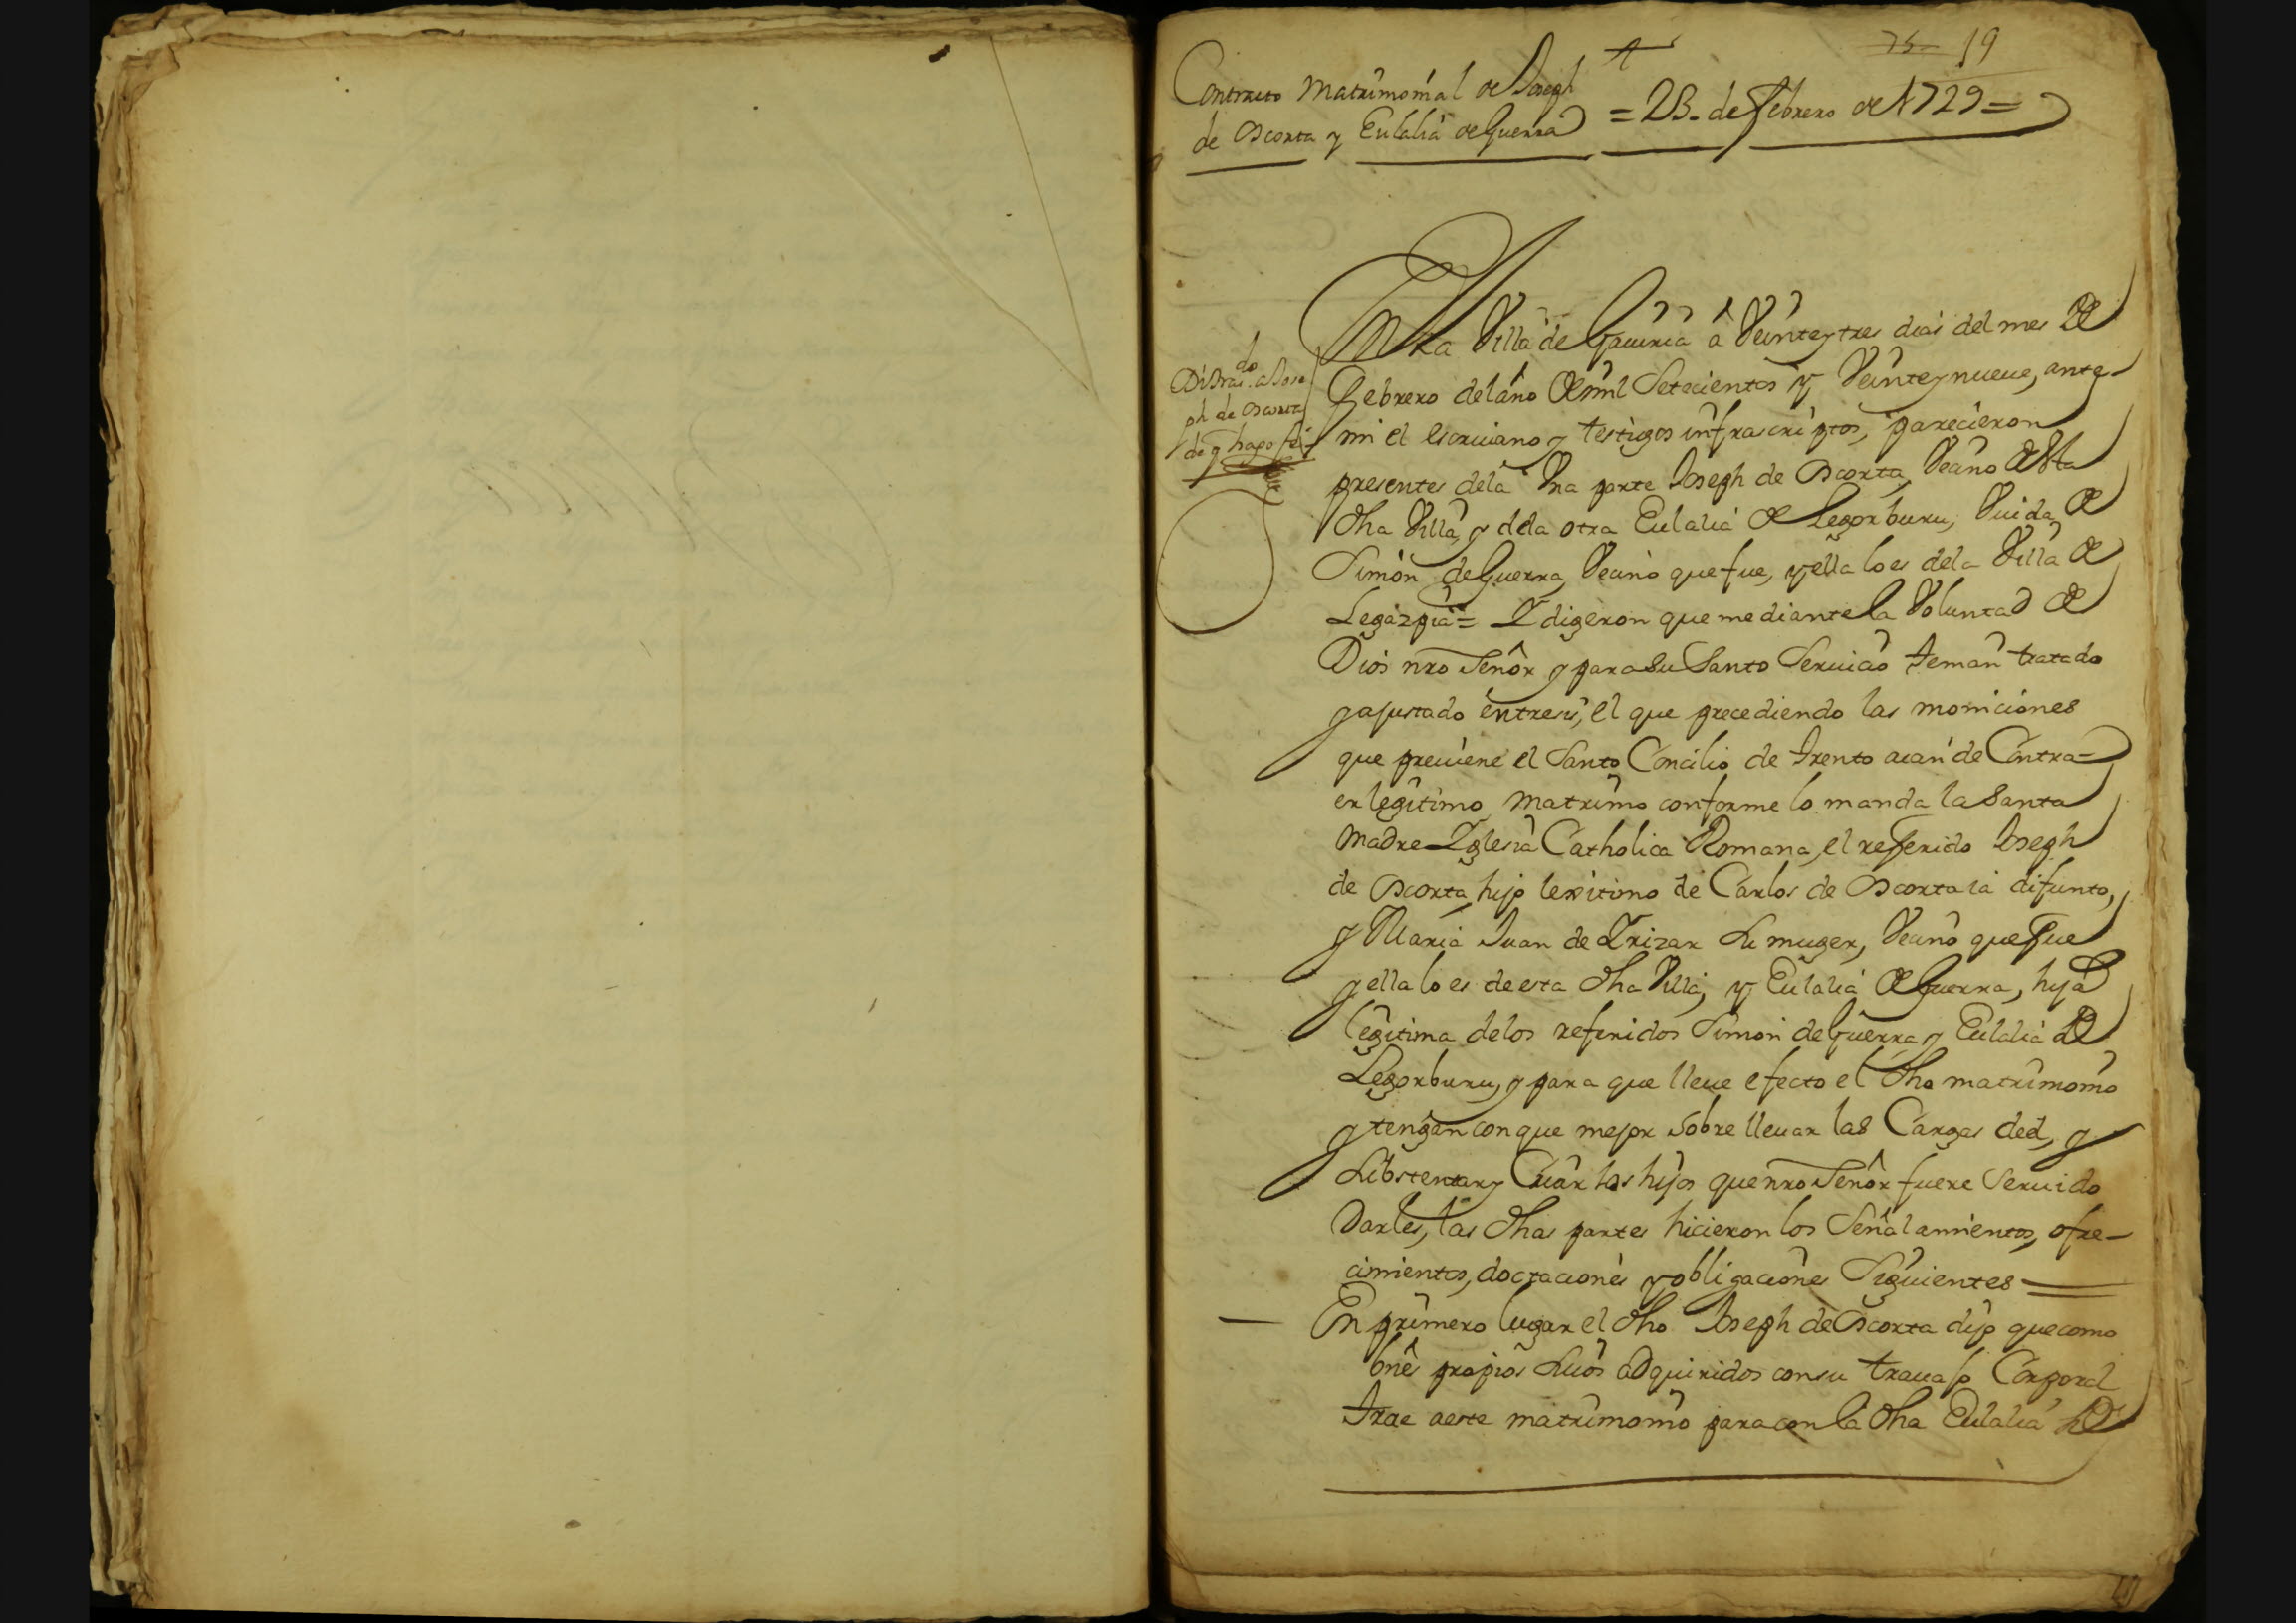 75 19
Contracto Matrimonial de Joseph
de Oscorta y Eulalia de Guerra
= 23 de febrero de 1729 =
En la Villa de Gauiria â Veinte y tres dias del mes de
febrero del año de mil Setecientos y Veinte y nueue, ante
mi el escriuano y testigos infrascriptos, parecieron
presentes de la Vna parte Joseph de Oscorta, Veciño desta
dha Villa, y de la otra Eulalia de Legorburu, Viuda de
Simón de Guerra, Veciño que fue, y ella lo es de la Villa de
Legazpia = Y digeron que mediante la Voluntad de
Dios nro Señor y para su Santo Seruicio tenian tratado
y ajustado entre si, el que precediendo las moniciones
que preuiene el Santo Concilio de Trento aian de Contra=
er legitimo matrimo conforme lo manda la Santa
Madre Yglesia Catholica Romana, el referido Joseph
de Oscorta, hijo lexitimo de Carlos de Oscorta ia difunto,
y Maria Juan de Yrizar su muger, Veciño que fue
y ella lo es de esta dha Villa, y Eulalia de Guerra, hija
legitima de los referidos Simon de Guerra y Eulalia de
Legorburu, y para que lleue efecto el dho matrimonio
y tengan con que mejor sobre lleuar las Cargas del, y
substentar y Criar los hijos que nro Señor fuere Seruido
Darles, las dhas partes hicieron los Señalamientos, ofre-
cimientos, doctaciones y obligaciones Siguientes =
En primero lugar el dho Joseph de Oscorta dijo que como
bnês propios suios adquiridos con su trauajo Corporal
Trae a este matrimonio para con la dha Eulalia de
Di tras.do a Jose
ph de Oscorta
de q hago fe